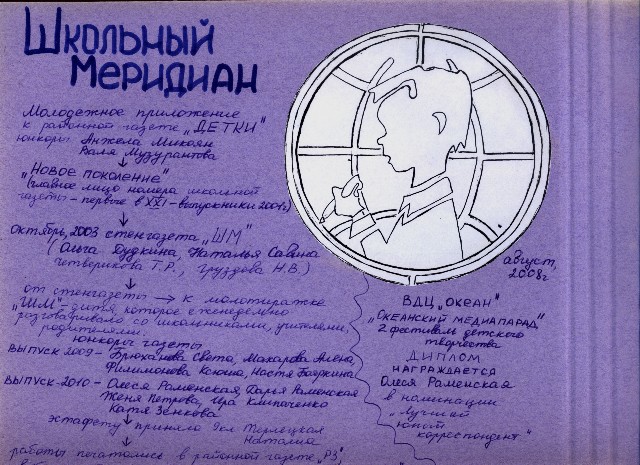 Школьный
Меридиан
Молодежное приложение
к районной газете „ДЕТКИ"
юнкоры Анжела Микоян
Валя Музурантова
„Новое поколение"
(главное лицо номера школьной
газеты – первые в XXI – выпускники 2001г)
Октябрь, 2003 стенгазета „ШМ"
(Ольга Дудкина, Наталья Савина
Четверикова Т.Р., Груздова Н.В.)
от стенгазеты → к малотиражке
„ШМ" – дитя, которое еженедельно
разговаривало со школьниками, учителями,
родителями.
юнкоры газеты
Выпуск 2009 – Брюханова Света, Макарова Алена,
Филимонова Ксюша, Настя Бояркина
Выпуск-2010 – Олеся Раменская, Дарья Раменская
Женя Петрова, Ира Клипаченко
Катя Зенкова
эстафету приняла Терлецкая
Наталия
работы печатались в районной газете „РЗ",
август,
2008г
ВДЦ „Океан"
„Океанский медиапарад"
2 фестиваль детского
творчества
ДИПЛОМ
НАГРАЖДАЕТСЯ
Олеся Раменская
в номинации
„Лучший
юный
корреспондент"